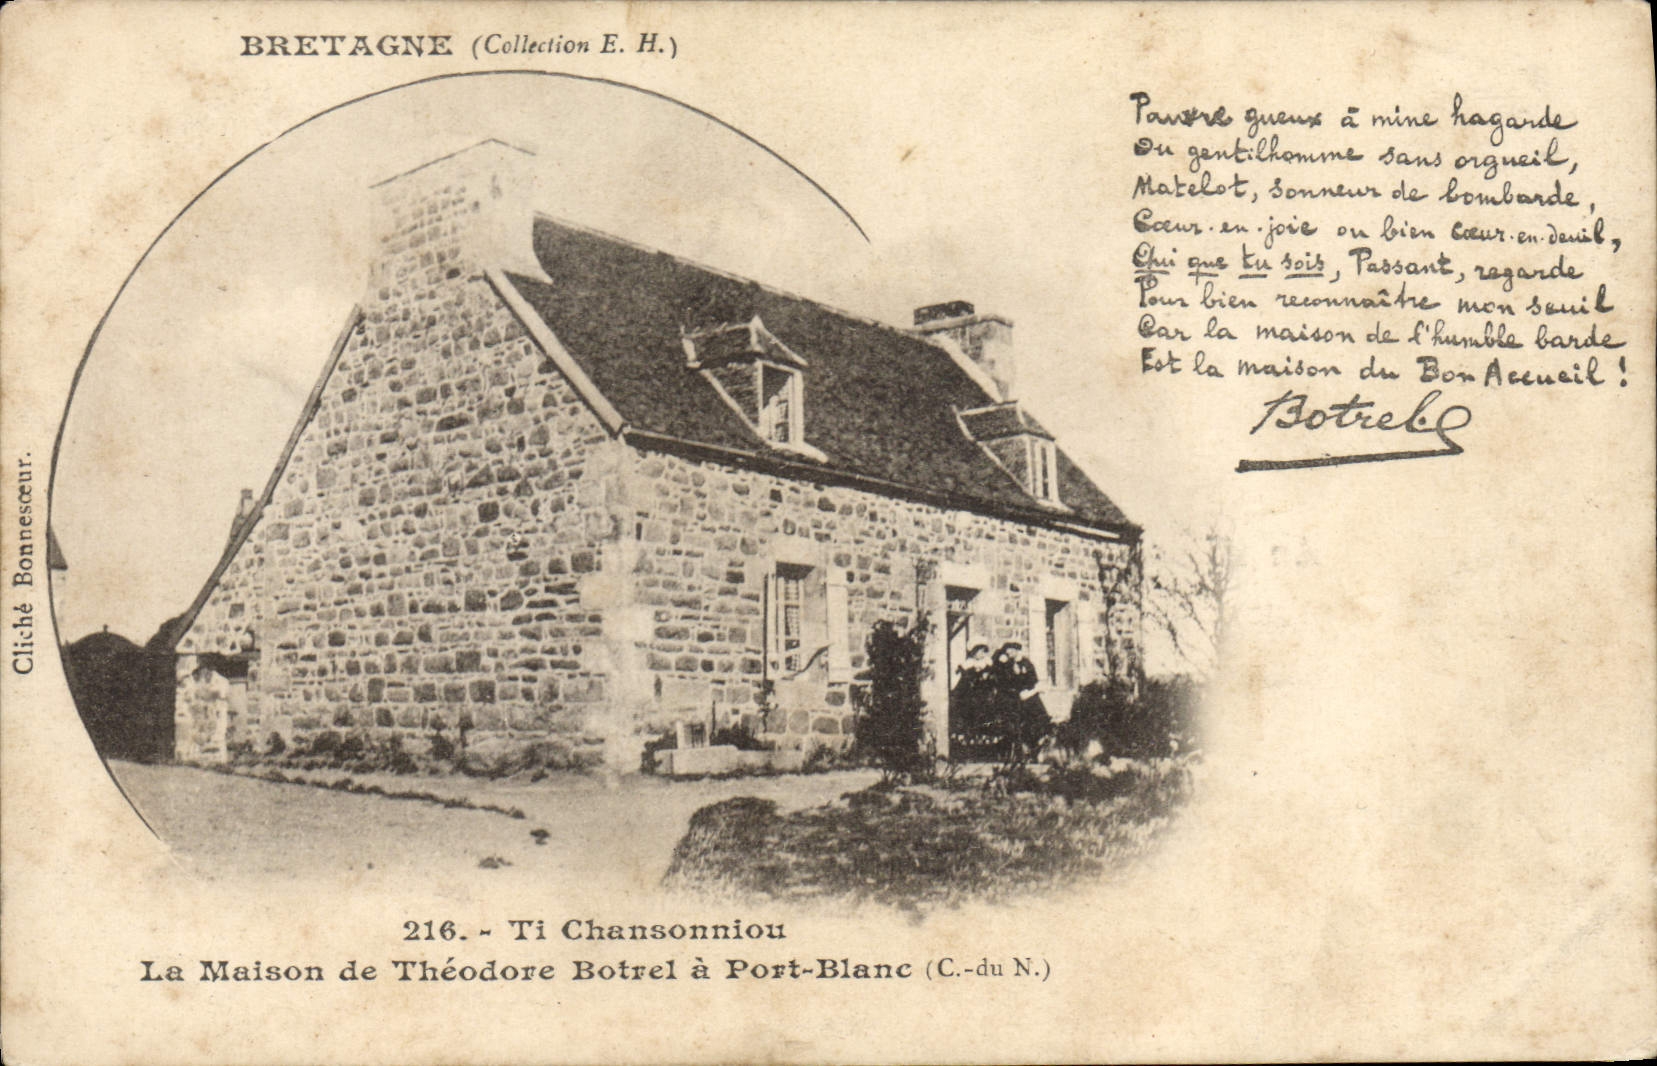 BRETAGNE (Collection E. H.)
Pauvre gueux à mine hagarde
Ou gentilhomme sans orgueil,
Matelot, sonneur de bombarde,
Cœur-en-joie ou bien Cœur-en-deuil,
Qui que tu sois, Passant, regarde
Pour bien reconnaître mon seuil
Car la maison de l'humble barde
Est la maison du Bon Accueil !
Botrel
Cliché Bonnesœur.
216. - Ti Chansonniou
La Maison de Théodore Botrel à Port-Blanc (C.-du N.)